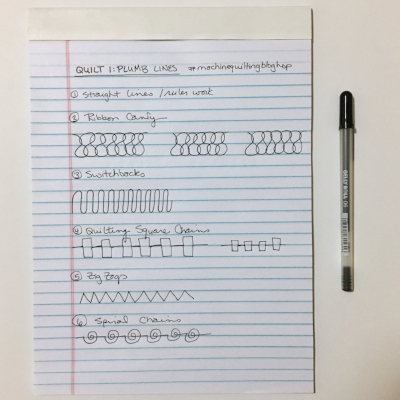 QUILT 1: PLUMB LINES #machinequiltingbloghop
① Straight lines / ruler work
② Ribbon Candy
③ Switchbacks
④ Quilting Square Chains
⑤ Zig Zags
⑥ Spiral Chains